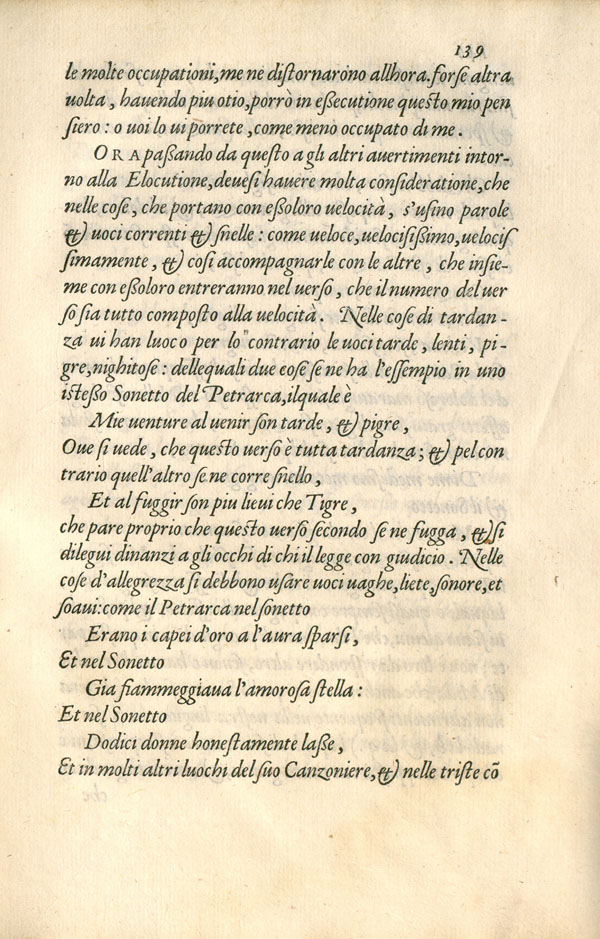 139
le molte occupationi, me ne distornarono allhora. forse altra
uolta, hauendo piu otio, porrò in eßecutione questo mio pen
siero: o uoi lo ui porrete, come meno occupato di me.
ORA paßando da questo a gli altri auertimenti intor-
no alla Elocutione, deuesi hauere molta consideratione, che
nelle cose, che portano con eßoloro uelocità, s'usino parole
& uoci correnti & snelle: come ueloce, uelocisißimo, uelocis
simamente, & cosi accompagnarle con le altre, che insie-
me con eßoloro entreranno nel uerso, che il numero del uer
so sia tutto composto alla uelocità. Nelle cose di tardan-
za ui han luoco per lo contrario le uoci tarde, lenti, pi-
gre, nighitose: delle quali due cose se ne ha l'essempio in uno
isteßo Sonetto del Petrarca, ilquale è
Mie uenture al uenir son tarde, & pigre,
Oue si uede, che questo uerso è tutta tardanza; & pel con
trario quell'altro se ne corre snello,
Et al fuggir son piu lieui che Tigre,
che pare proprio che questo uerso secondo se ne fugga, & si
dilegui dinanzi a gli occhi di chi il legge con giudicio. Nelle
cose d'allegrezza si debbono usare uoci uaghe, liete, sonore, et
soaui: come il Petrarca nel sonetto
Erano i capei d'oro a l'aura sparsi,
Et nel Sonetto
Gia fiammeggiaua l'amorosa stella:
Et nel Sonetto
Dodici donne honestamente laße,
Et in molti altri luochi del suo Canzoniere, & nelle triste cõ